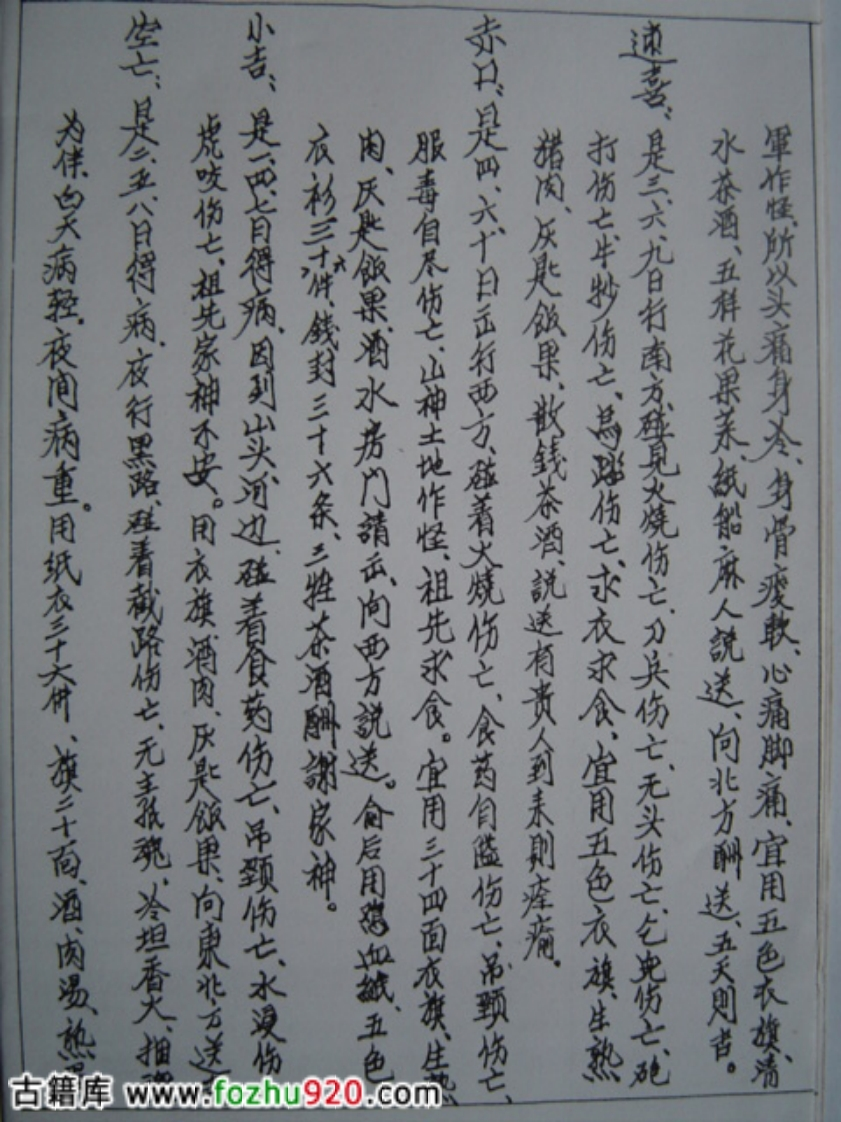 軍作怪、所以头痛身冷、身骨痠軟、心痛脚痛、宜用五色衣旗、清
水茶酒、五样花果菜、紙船麻人説送、向北方酬送、五天則吉。
速喜：是三、六、九日行南方、碰見火燒伤亡、刀兵伤亡、无头伤亡、乞兜伤亡、砲
打伤亡、牛抄伤亡、馬踏伤亡、求衣求食、宜用五色衣旗、生熟
猪肉、灰匙飯果、散錢茶酒、説送有貴人到来則痊癒。
赤口：是四、六、十日出行西方、碰着火燒伤亡、食药自隘伤亡、吊頸伤亡、
服毒自尽伤亡、山神土地作怪、祖先求食。宜用三十四面衣旗、生熟
肉、灰匙飯果、酒水房門請出、向西方説送。俞后用 血紙、五色
衣衫三十六件、錢封三十六条、三牲茶酒酬謝家神。
小吉：是一、四、七日得病、因到山头、河边、碰着食药伤亡、吊頸伤亡、水浸伤
虎咬伤亡、祖先家神不安。用衣旗、酒肉、灰匙飯果、向東北方送
空亡：是二、五、八日得病、夜行黑路、碰着截路伤亡、无主孤魂、冷坦香火、
为伴、白天病轻、夜间病重。用纸衣三十六件、旗二十面、酒、肉湯、熟
古籍库 www.fozhu920.com